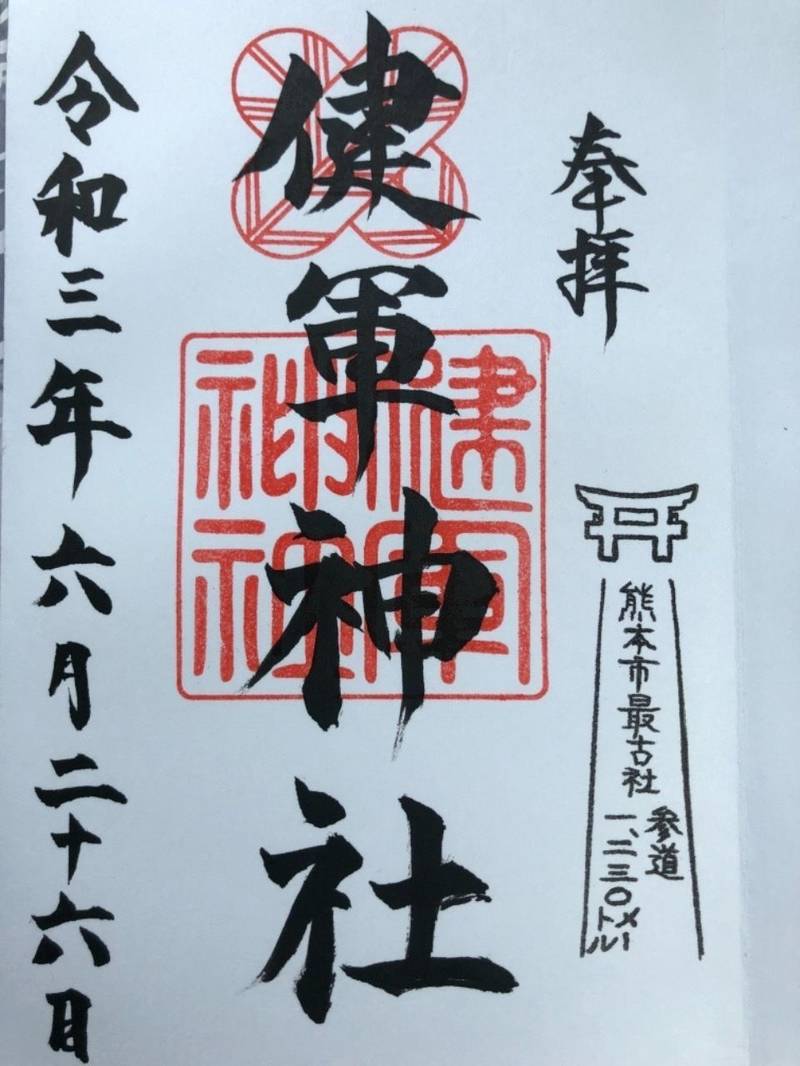 奉拝
熊本市最古社
参道
一、二三〇メートル
健軍神社
健軍
神社
令和三年六月二十六日